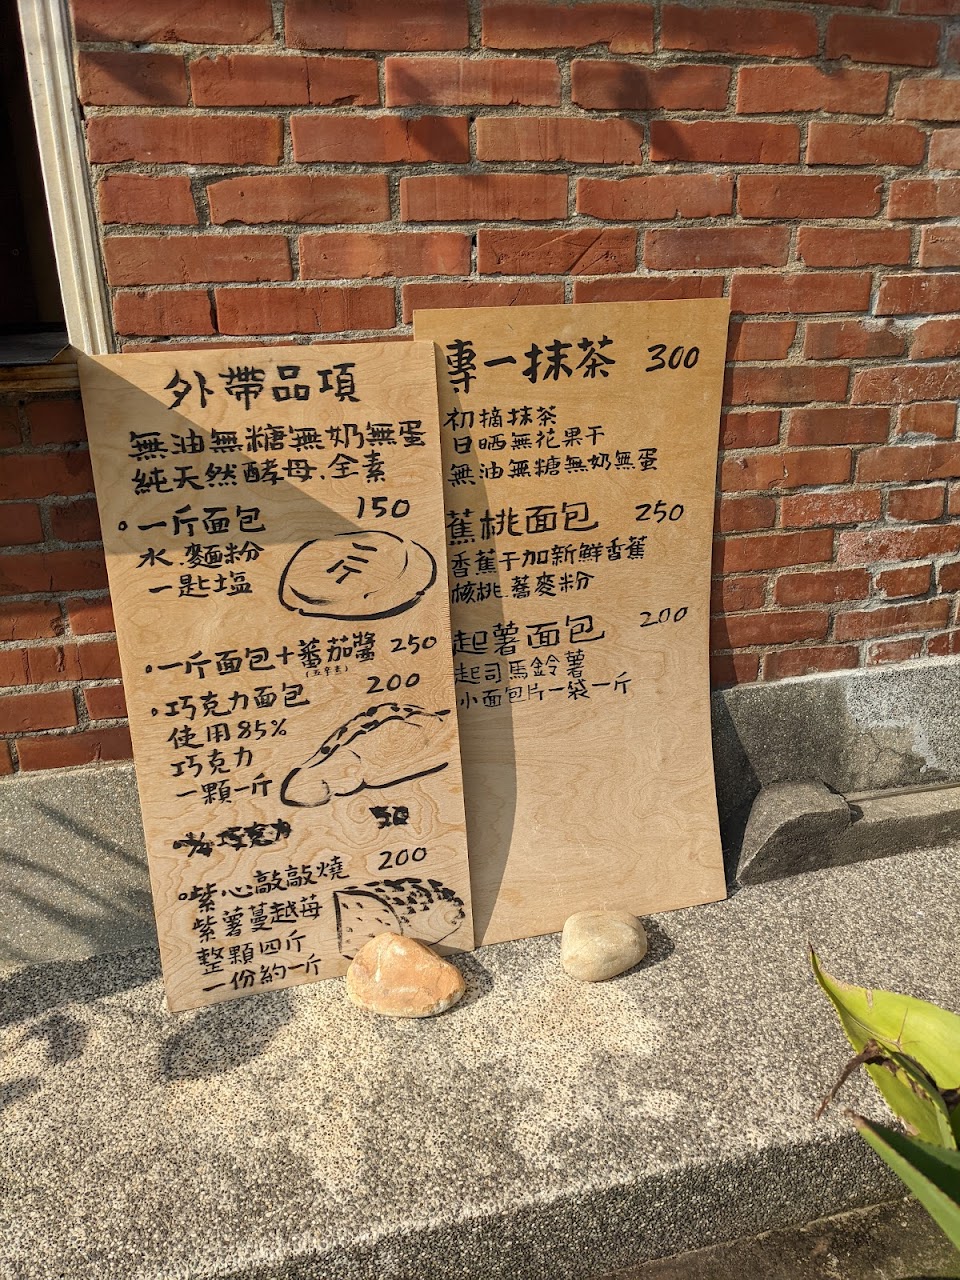 外帶品項
無油無糖無奶無蛋
純天然酵母.全素
。一斤面包 150
水.麵粉
一匙塩
。一斤面包+蕃茄醬 250
(五辛素)
。巧克力面包 200
使用85%
巧克力
一顆一斤
巧克力 50
。紫心敲敲燒 200
紫薯蔓越苺
整顆四斤
一份約一斤
專一抹茶 300
初摘抹茶
日晒無花果干
無油無糖無奶無蛋
蕉桃面包 250
香蕉干加新鮮香蕉
核桃.蕎麥粉
起薯面包 200
起司馬鈴薯
小面包片一袋一斤